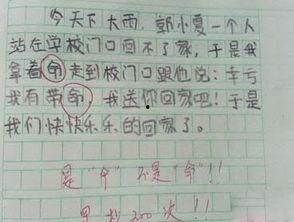 今天下大雨，郭小夏一个人
站在学校门口回不了家，于是我
拿着命走到校门口跟他说：幸亏
我有带命，我送你回家吧！于是
我们快快乐乐的回家了。
是“伞”不是“命”!!
抄200次!!